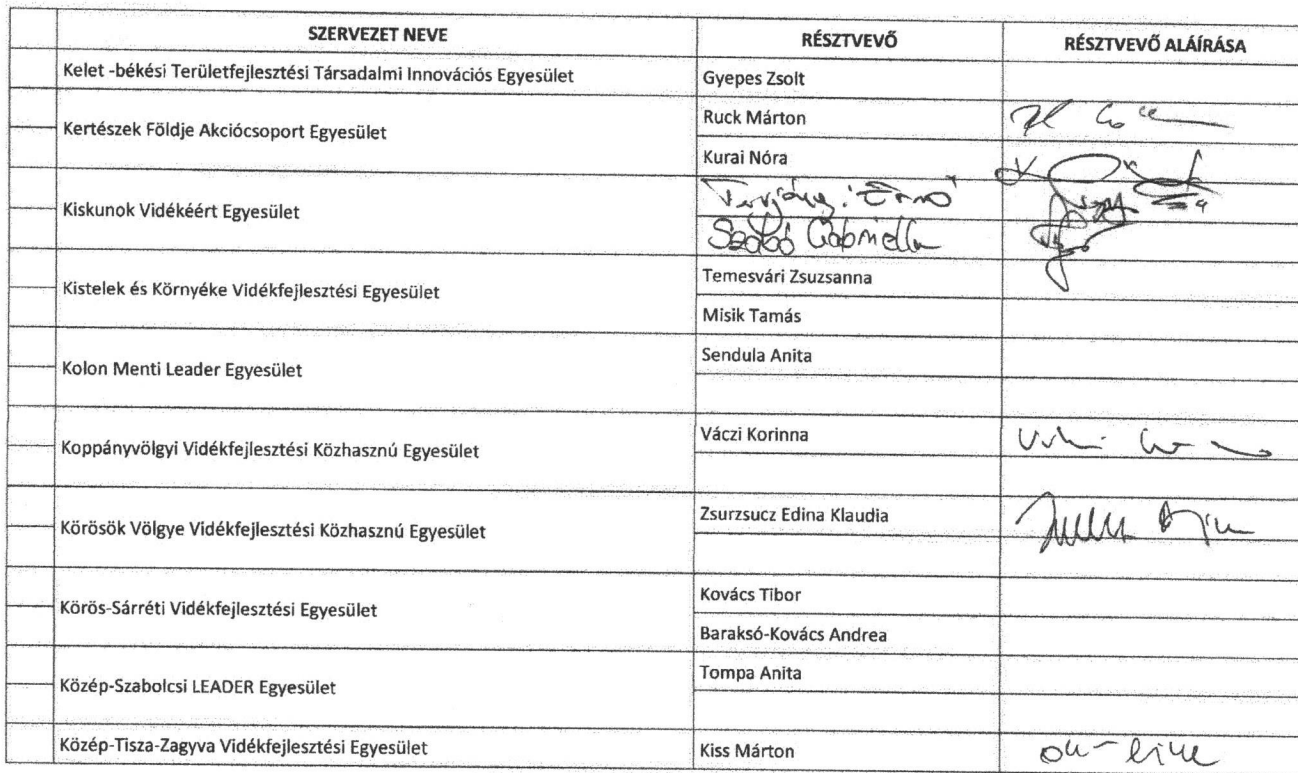 SZERVEZET NEVE RÉSZTVEVŐ RÉSZTVEVŐ ALÁÍRÁSA
Kelet -békési Területfejlesztési Társadalmi Innovációs Egyesület Gyepes Zsolt
Kertészek Földje Akciócsoport Egyesület Ruck Márton
Kurai Nóra
Kiskunok Vidékéért Egyesület Ernő
Szabó Gabriella
Kistelek és Környéke Vidékfejlesztési Egyesület Temesvári Zsuzsanna
Misik Tamás
Kolon Menti Leader Egyesület Sendula Anita
Koppányvölgyi Vidékfejlesztési Közhasznú Egyesület Váczi Korinna
Körösök Völgye Vidékfejlesztési Közhasznú Egyesület Zsurzsucz Edina Klaudia
Körös-Sárréti Vidékfejlesztési Egyesület Kovács Tibor
Baraksó-Kovács Andrea
Közép-Szabolcsi LEADER Egyesület Tompa Anita
Közép-Tisza-Zagyva Vidékfejlesztési Egyesület Kiss Márton on-line